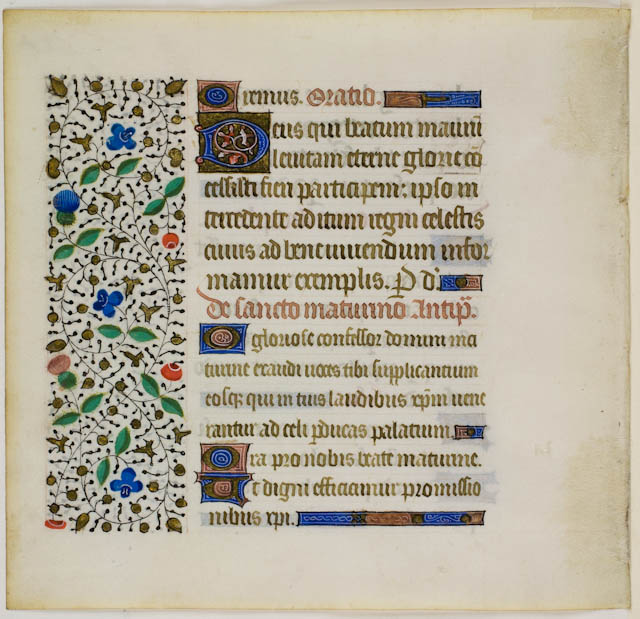 Oremus. Oratio.
Deus qui beatum maurū
leuitam eterne glorie cō
cessisti fieri participem: ipso in
tercedente ad itum regni celestis
cuius ad bene uiuendum infor
mamur exemplis. P d
De sancto maturino Antiph.
O gloriose confessor domini ma
turine exaudi uoces tibi supplicantium
eosq; qui in tuis laudibus xp̄m uene
rantur ad celi perducas palatium.
Ora pro nobis beate maturine.
Ut digni efficiamur promissio
nibus xpi.